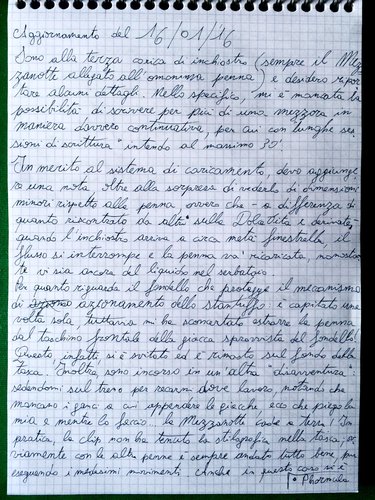 Aggiornamento del 16/01/16
Sono alla terza carica di inchiostro (sempre il Mez
zanotte allegato all'omonima penna) e desidero ripor
tare alcuni dettagli. Nello specifico, mi è mancata la
possibilità di scrivere per più di una mezzora in
maniera davvero continuativa, per cui con "lunghe ses
sioni di scrittura" intendo al massimo 30'.
In merito al sistema di caricamento, devo aggiunge
re una nota, oltre alla sorpresa di vederlo di dimensioni
minori rispetto alle penna ovvero che - a differenza di
quanto riscontrato da altri sulla Dolcetta e derivate -
quando l'inchiostro arriva a circa metà finestrella, il
flusso si interrompe e la penna va ricaricata, nonostan
te vi sia ancora del liquido nel serbatoio.
Per quanto riguarda il fondello che protegge il meccanismo
di azionamento dello stantuffo: è capitato una
volta sola, tuttavia mi ha sconcertato estrarre la penna
dal taschino frontale della giacca sprovvista del fondello!
Questo, infatti, si è svitato ed è rimasto sul fondo della
tasca. Inoltre sono incorso in un'altra "disavventura":
sedendomi sul treno per recarmi dove lavoro, notando che
mancano i ganci a cui appendere le giacche, ecco che piego la
mia e mentre lo faccio.. la Mezzanotte cade a terra! In
pratica, la clip non ha tenuto la stilografica nella tasca, ov
viamente con le altre penne è sempre andato tutto bene, pur
eseguendo i medesimi movimenti. Anche in questo caso si è
Phormula